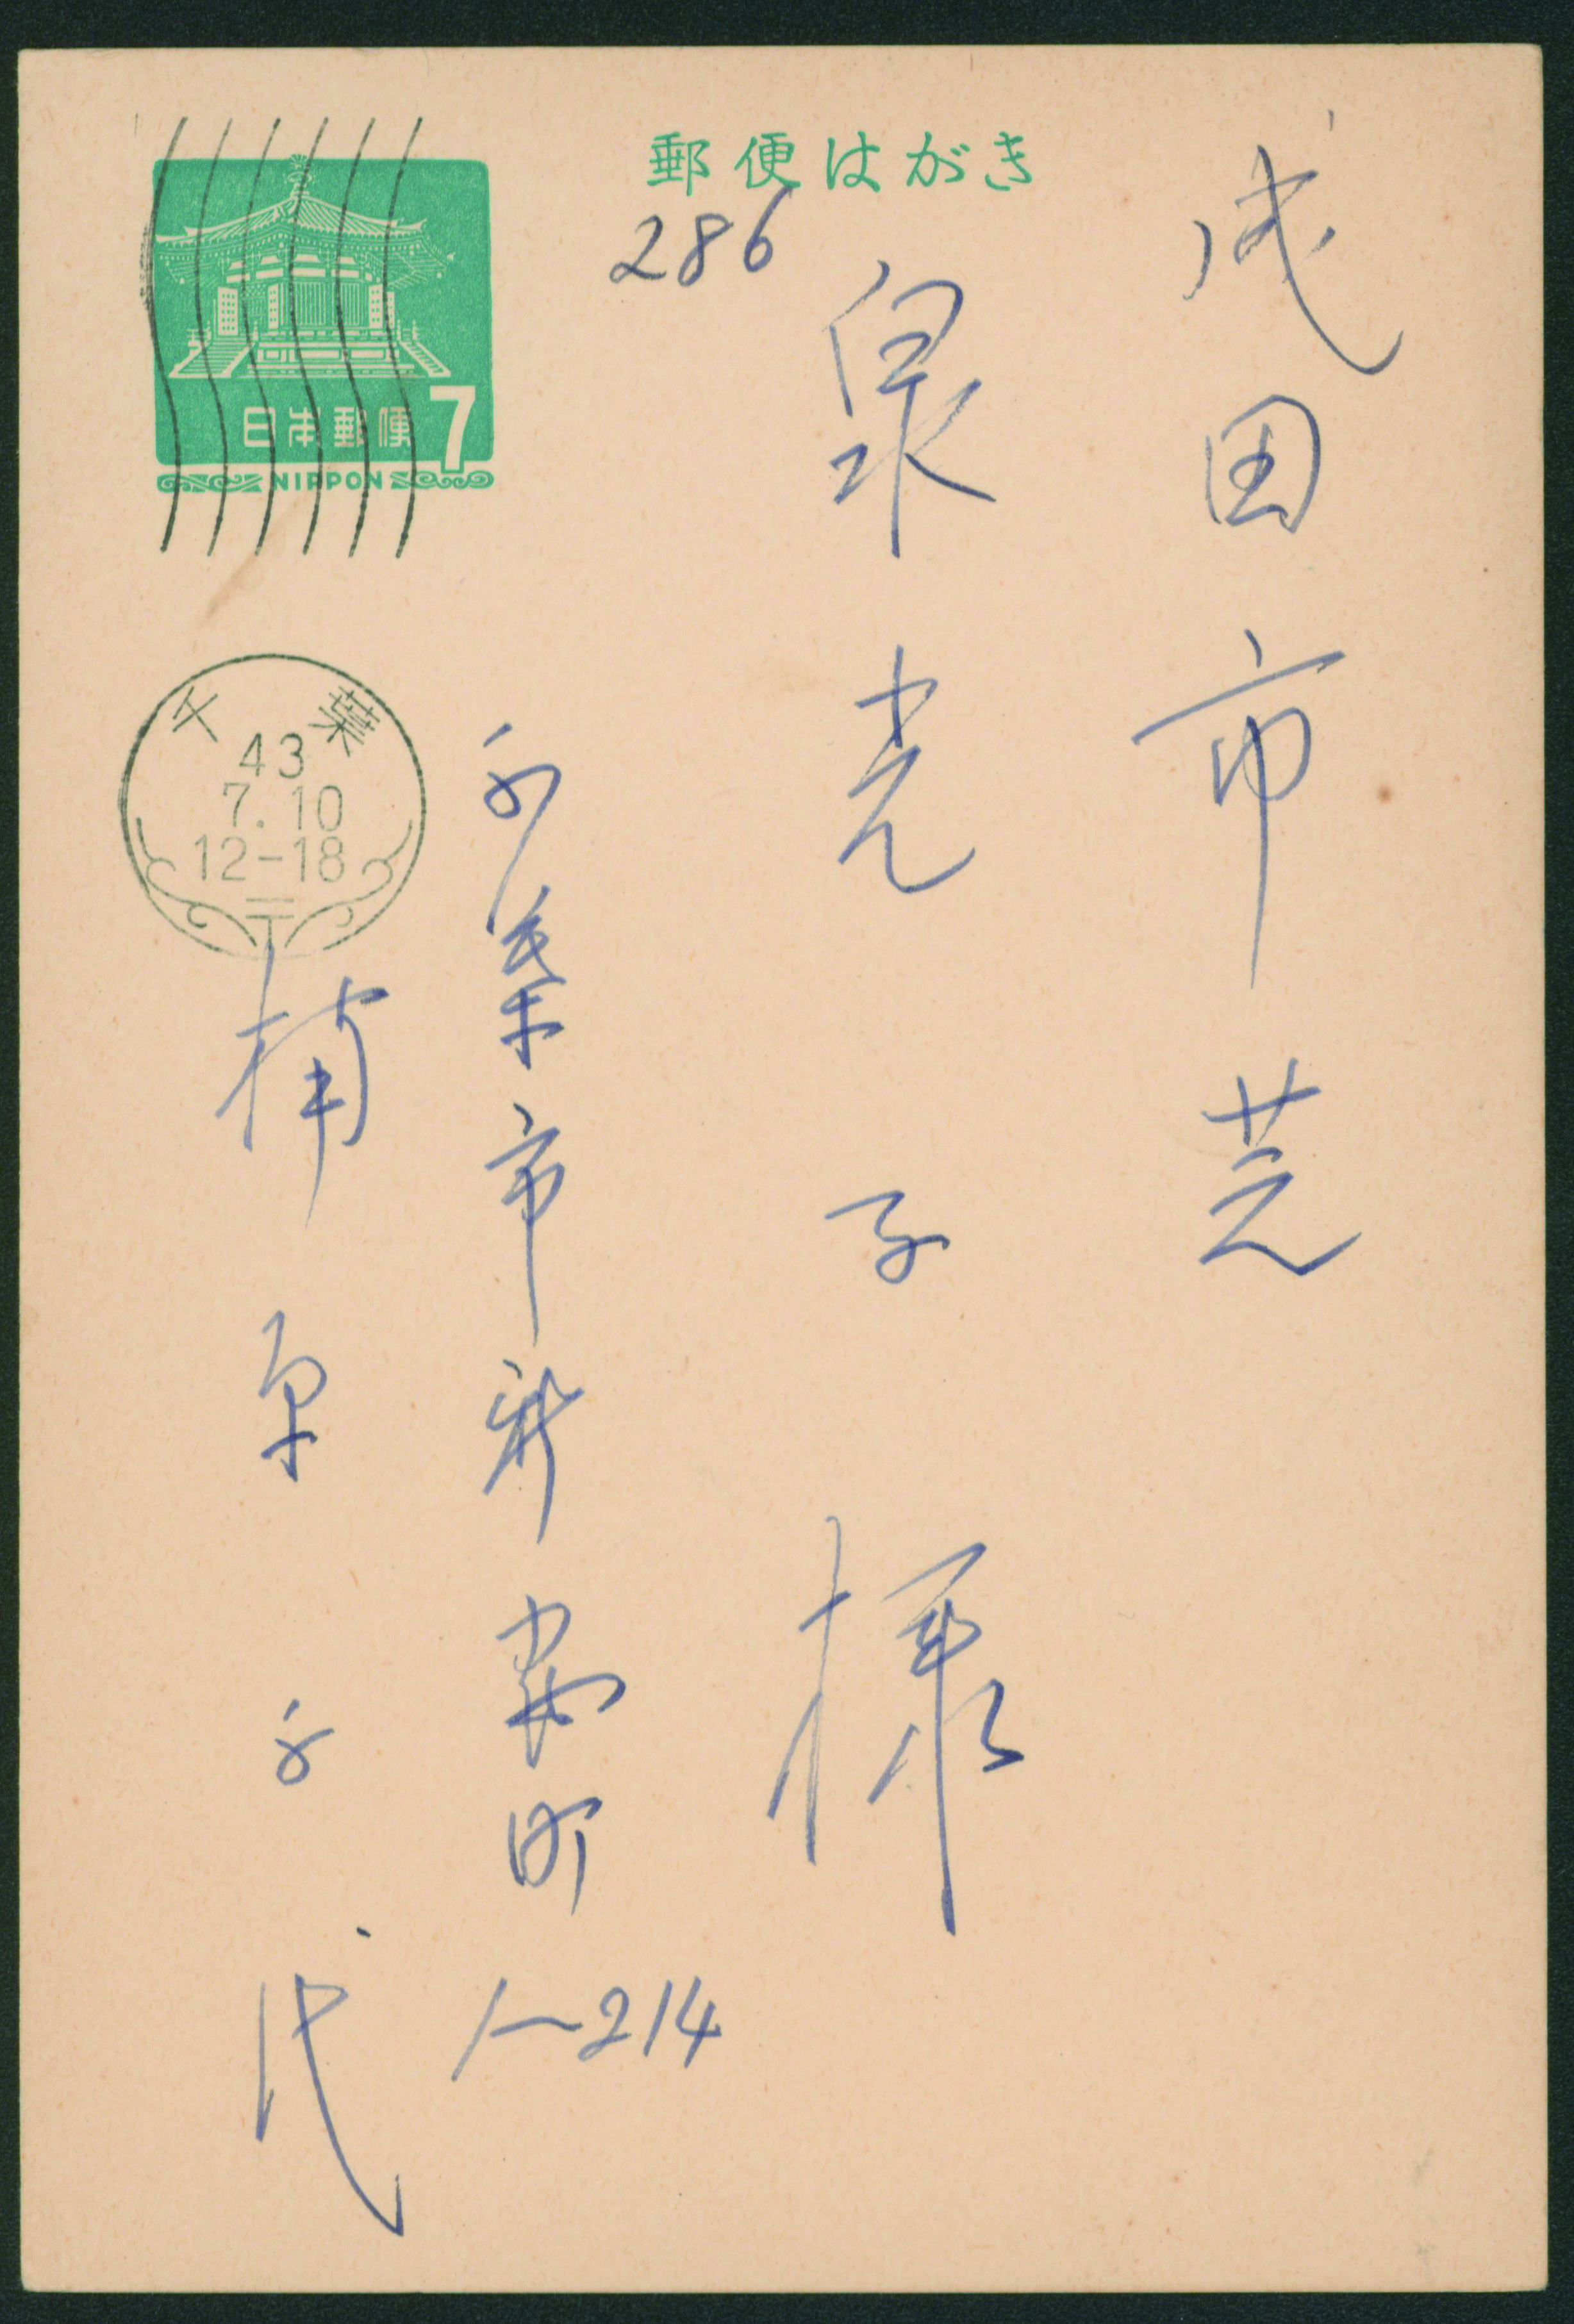 郵便はがき
286
成田市芝
泉光子様
千葉市新宿町
1-214
楠原千代
日本郵便
7
NIPPON
千葉
43
7.10
12-18